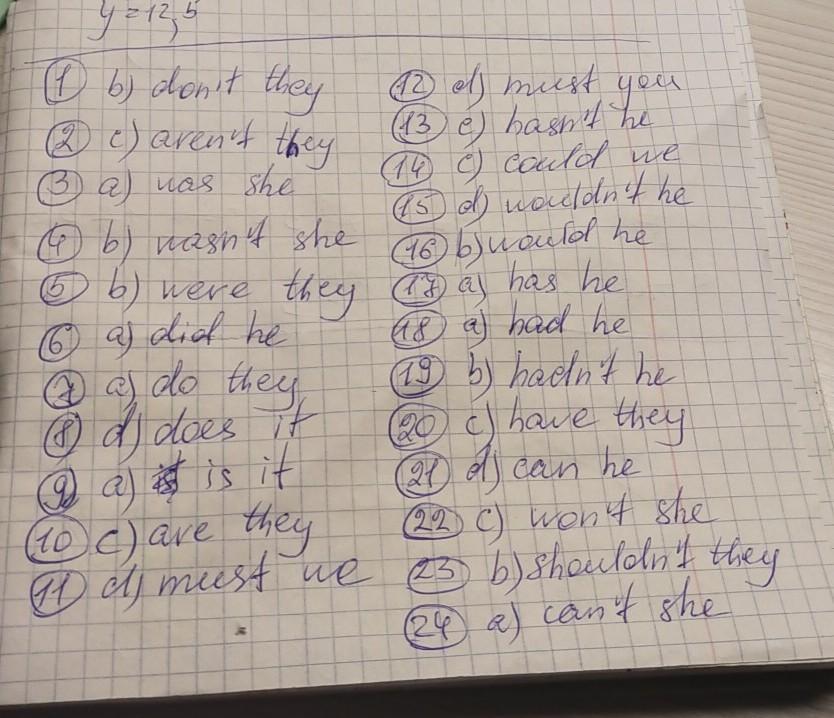 y = 12,5
1 b) don't they
2 c) aren't they
3 a) was she
4 b) wasn't she
5 b) were they
6 a) did he
7 a) do they
8 d) does it
9 a) is it
10 c) are they
11 d) must we
12 d) must you
13 c) hasn't he
14 c) could we
15 d) wouldn't he
16 b) would he
17 a) has he
18 a) had he
19 b) hadn't he
20 c) have they
21 d) can he
22 c) won't she
23 b) shouldn't they
24 a) can't she